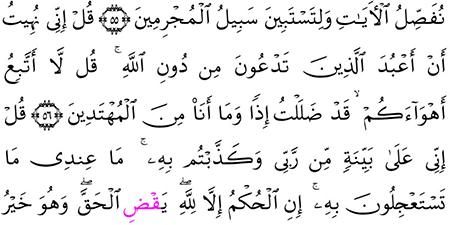 نُفَصِّلُ الْأَيَـٰتِ وَلِتَسْتَبِينَ سَبِيلُ الْمُجْرِمِينَ ۝٥٥ قُلْ إِنِّى نُهِيتُ
أَنْ أَعْبُدَ الَّذِينَ تَدْعُونَ مِن دُونِ اللَّهِ ۚ قُل لَّا أَتَّبِعُ
أَهْوَآءَكُمْ ۙ قَدْ ضَلَلْتُ إِذًا وَمَا أَنَا۠ مِنَ الْمُهْتَدِينَ ۝٥٦ قُلْ
إِنِّى عَلَىٰ بَيِّنَةٍ مِّن رَّبِّى وَكَذَّبْتُم بِهِۦ ۚ مَا عِندِى مَا
تَسْتَعْجِلُونَ بِهِۦ ۚ إِنِ الْحُكْمُ إِلَّا لِلَّهِ ۖ يَقْضِ الْحَقَّ ۖ وَهُوَ خَيْرُ